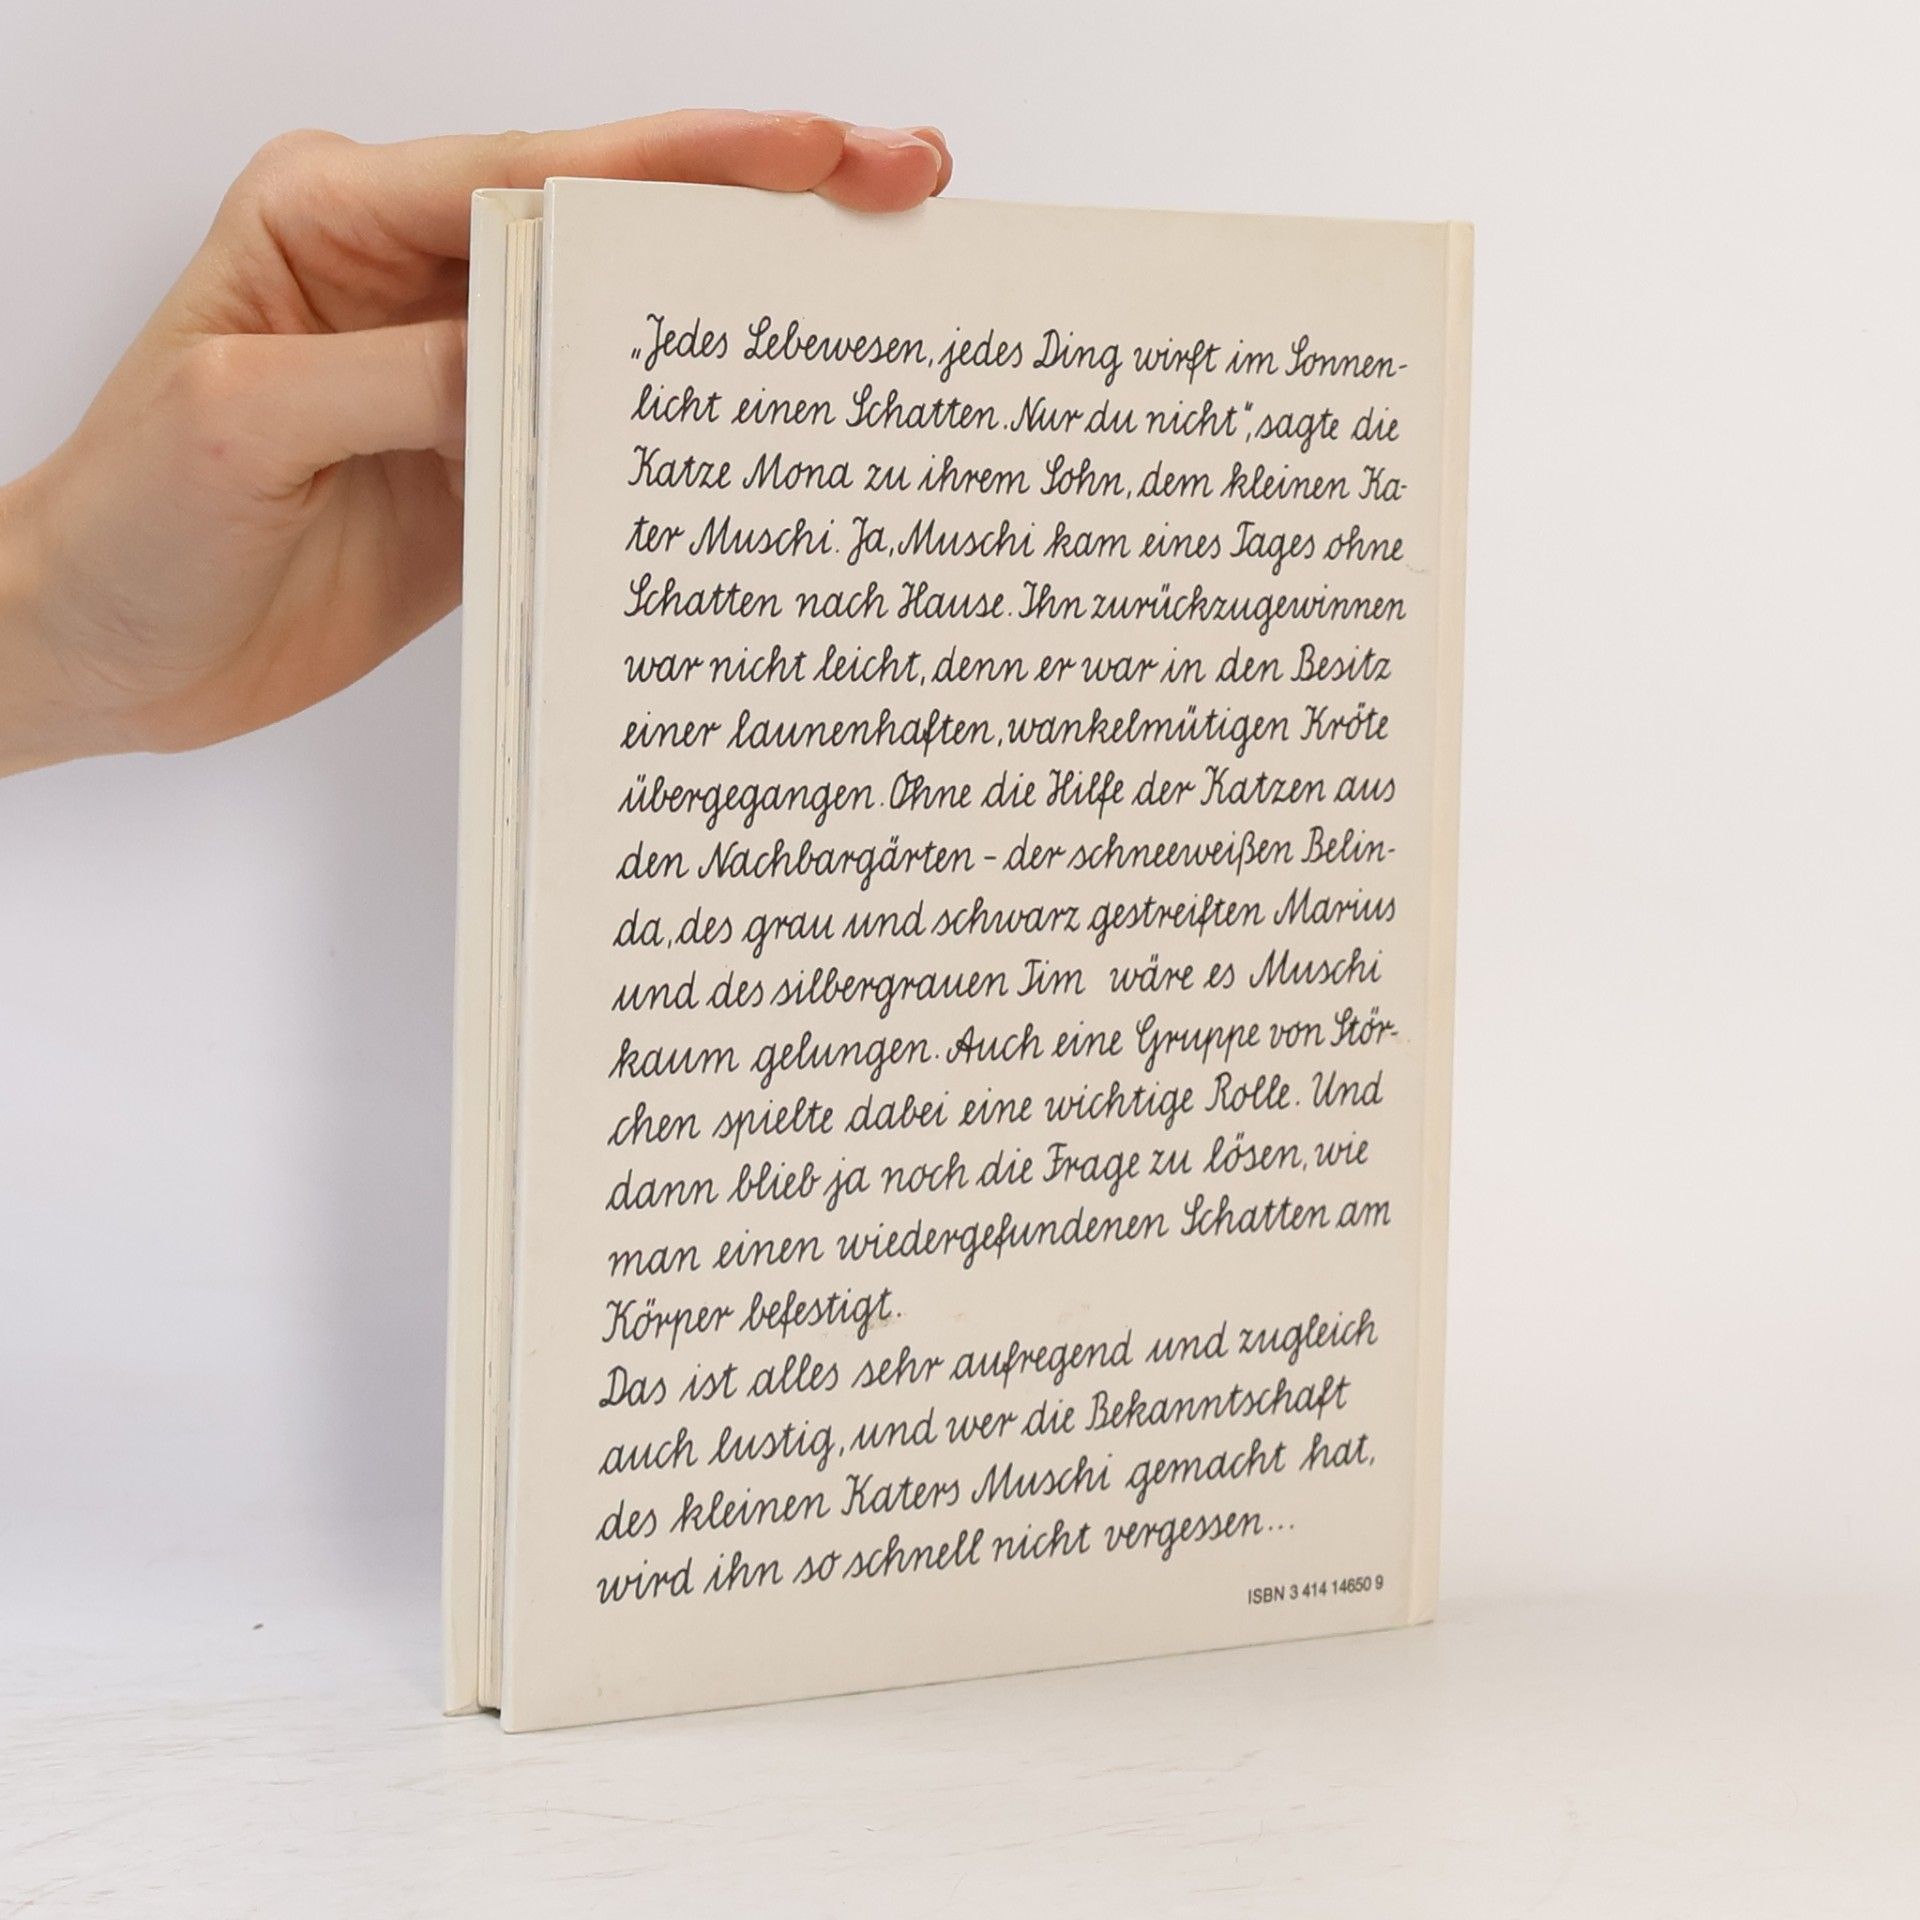 „Jedes Lebewesen, jedes Ding wirft im Sonnen-
licht einen Schatten. Nur du nicht“, sagte die
Katze Mona zu ihrem Sohn, dem kleinen Ka-
ter Muschi. Ja, Muschi kam eines Tages ohne
Schatten nach Hause. Ihn zurückzugewinnen
war nicht leicht, denn er war in den Besitz
einer launenhaften, wankelmütigen Kröte
übergegangen. Ohne die Hilfe der Katzen aus
den Nachbargärten – der schneeweißen Belin-
da, des grau und schwarz gestreiften Marius
und des silbergrauen Tim wäre es Muschi
kaum gelungen. Auch eine Gruppe von Stör-
chen spielte dabei eine wichtige Rolle. Und
dann blieb ja noch die Frage zu lösen, wie
man einen wiedergefundenen Schatten am
Körper befestigt.
Das ist alles sehr aufregend und zugleich
auch lustig, und wer die Bekanntschaft
des kleinen Katers Muschi gemacht hat,
wird ihn so schnell nicht vergessen...
ISBN 3 414 14650 9